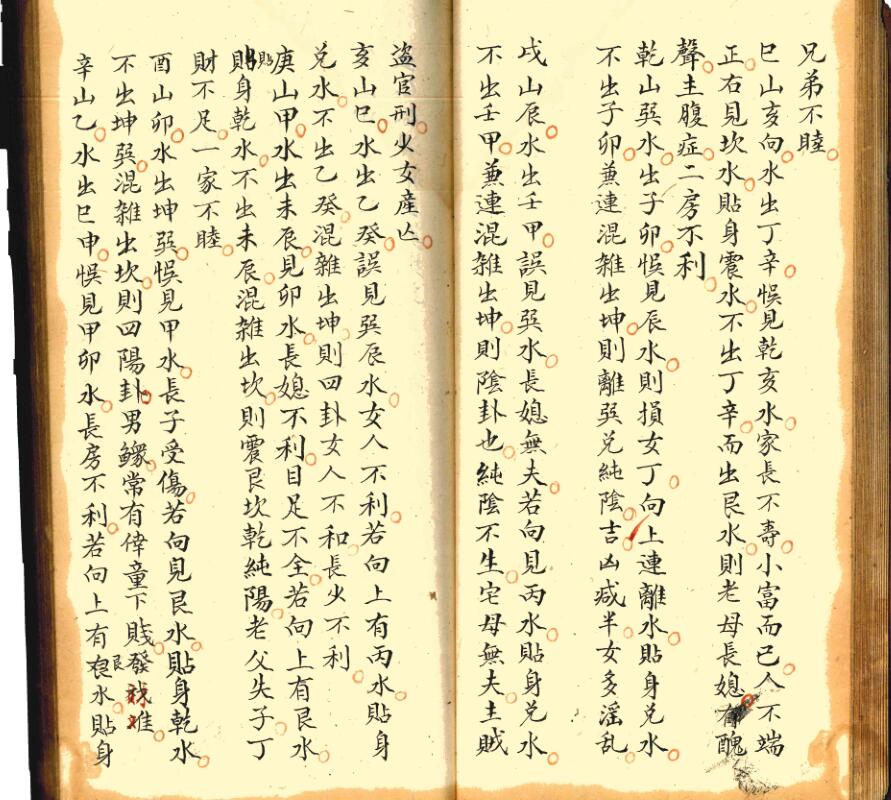 兄弟不睦
巳山亥向水出丁辛悞見乾亥水家長不壽小富而已人不端
正右見坎水貼身震水不出丁辛而出艮水則老母長媳有醜
聲主腹症二房不利
乾山巽水出子卯悞見辰水則損女丁向上連離水貼身兑水
不出子卯兼連混雜出坤則離巽兑純陰吉凶咸半女多淫乱
戌山辰水出壬甲誤見巽水長媳無夫若向見丙水貼身兑水
不出壬甲兼連混雜出坤則陰卦也純陰不生宅母無夫主賊
盗官刑少女產亡
亥山巳水出乙癸誤見巽辰水女人不利若向上有丙水貼身
兑水不出乙癸混雜出坤則四卦女人不和長少不利
庚山甲水出未辰見卯水長媳不利目足不全若向上有艮水
貼身乾水不出未辰混雜出坎則震艮坎乾純陽老父失子丁
財不足一家不睦
酉山卯水出坤巽悞見甲水長子受傷若向見艮水貼身乾水
不出坤巽混雜出坎則四陽卦男鰥常有倖童下賤發 难
辛山乙水出巳申悞見甲卯水長房不利若向上有艮水貼身